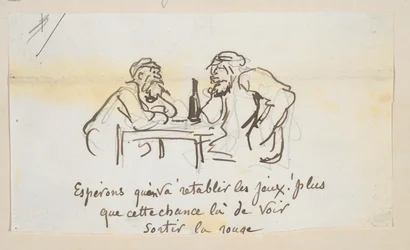 Espérons qu'on va rétablir les jeux! plus
que cette chance là de voir
sortir la rouge